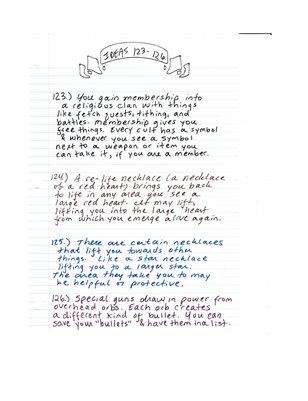 IDEAS 123-126
123.) You gain membership into
a religious clan with things
like fetch quests, tithing, and
battles. Membership gives you
free things. Every cult has a symbol
& whenever you see a symbol
next to a weapon or item you
can take it, if you are a member.
124.) A re-life necklace (a necklace
of a red heart) brings you back
to life in any area you see a
large red heart. It may lift,
lifting you into the large heart
from which you emerge alive again.
125.) There are certain necklaces
that lift you towards other
things. Like a star necklace
lifting you to a larger star.
The area they take you to may
be helpful or protective.
126.) Special guns draw in power from
overhead orbs. Each orb creates
a different kind of bullet. You can
save your "bullets" & have them in a list.